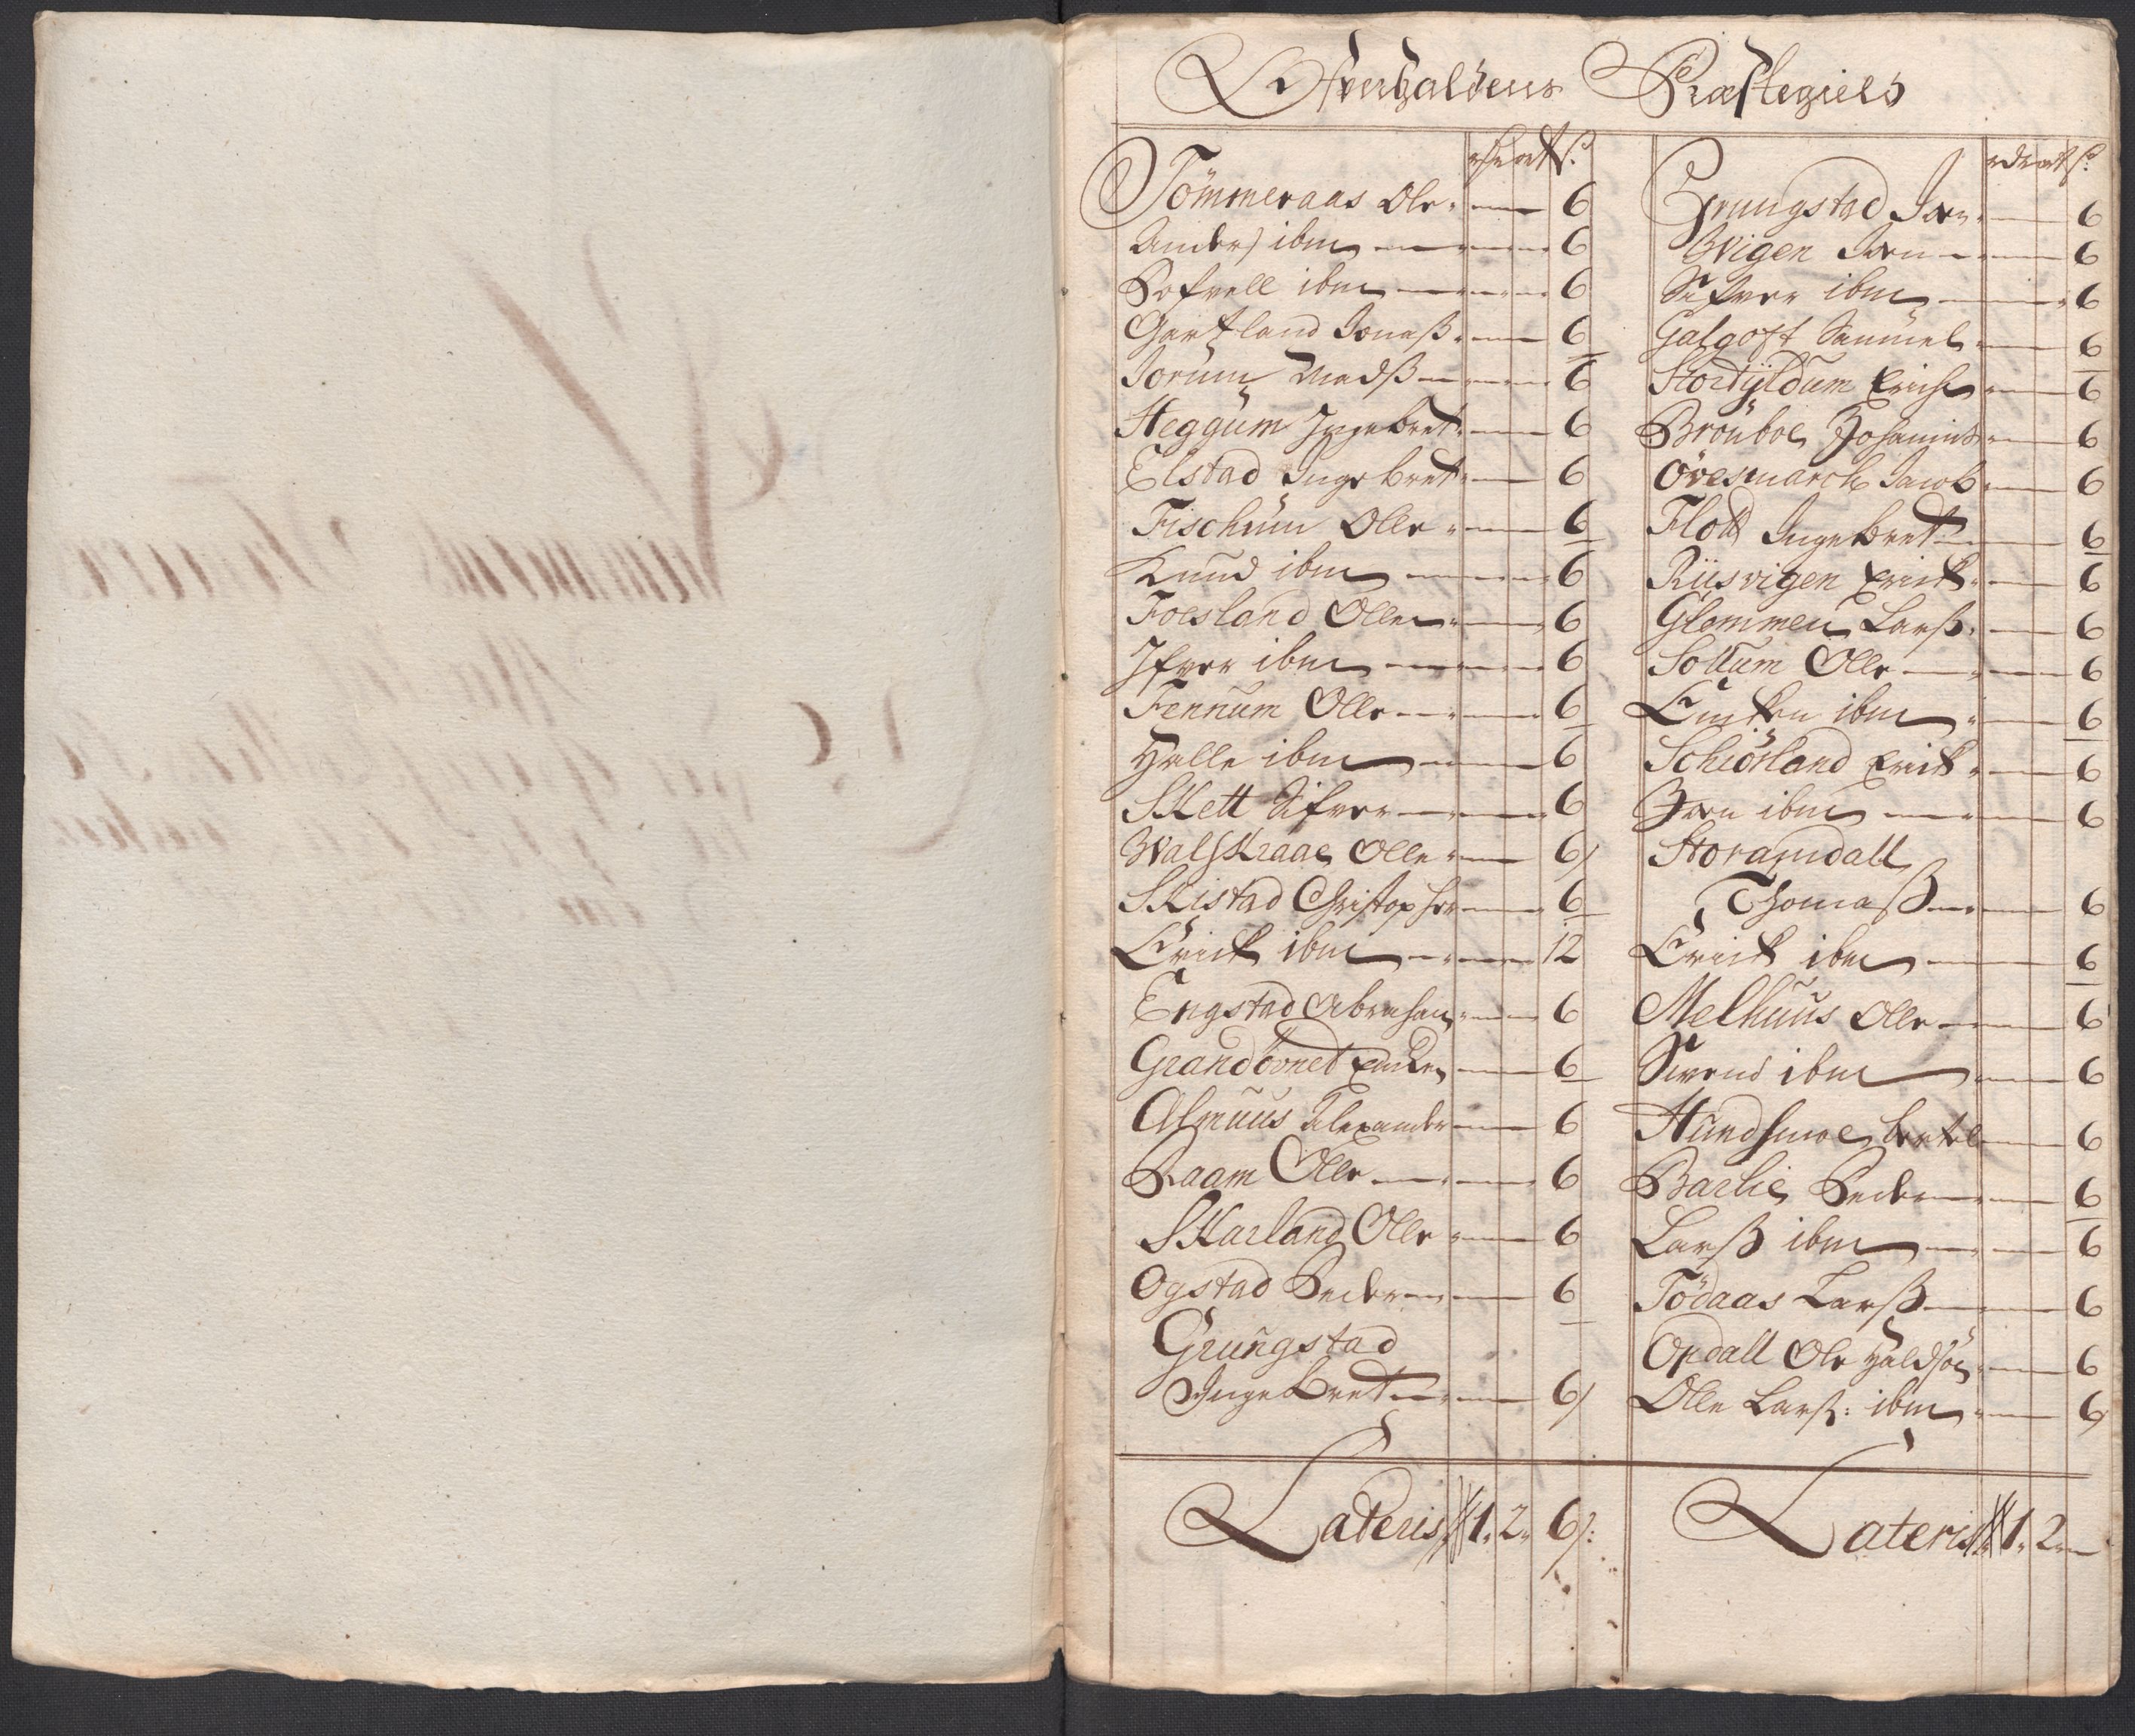 Ofverhaldens Præstegield
rdr ort s:
Tömmeraas Ole 6
Anders ibm 6
Gartland Jonaß 6
Jorum Madß 6
Heggum Ingebret 6
Elstad Ingebret 6
Fischum Olle 6
Knud ibm 6
Foesland Olle 6
Ifver ibm 6
Fennum Olle 6
Halle ibm 6
Skett Sifver 6
Walskraae Olle 6
Skistad Christopher 6
Erick ibm 12
Engstad Abraham 6
Grandövnet 6
Almuus Alexander 6
Raam Olle 6
Skarland Olle 6
Ogstad Peder 6
Grungstad
Ingebret 6
Lateris 1 2 6 s:
rdr ort s:
Grungstad Jon 6
Wigen Jon 6
Sifver ibm 6
Galgoft Samuel 6
Stortÿldum Erich 6
Brönboe Johannis 6
Övesmarch Jacob 6
Flott Ingebret 6
Riisvigen Erick 6
Glommen Larß 6
Sollum Olle 6
ibm 6
Schiörland Erick 6
Jon ibm 6
Storamdall
Thomaß 6
Erick ibm 6
Melhuus Olle 6
Svend ibm 6
Hundsmoe Bertel 6
Barlie Peder 6
Larß ibm 6
Tödaas Larß 6
Opdall Ole Haldsön 6
Olle Larß: ibm 6
Lateris 1 2